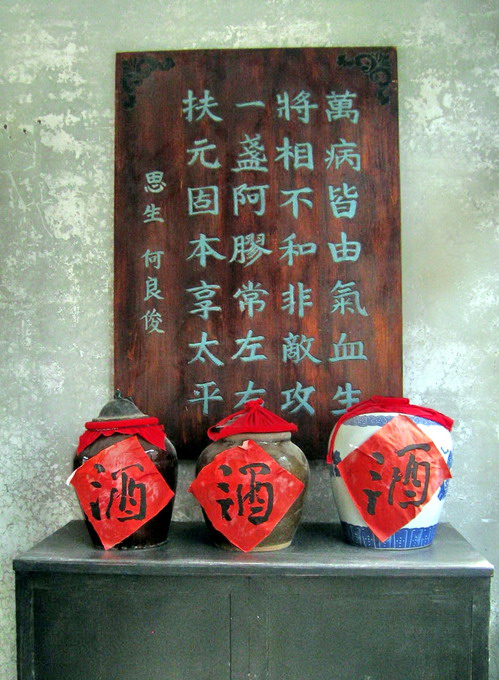 萬病皆由氣血生
將相不和非敵攻
一盞阿膠常左右
扶元固本享太平
思生 何良俊
酒
酒
酒